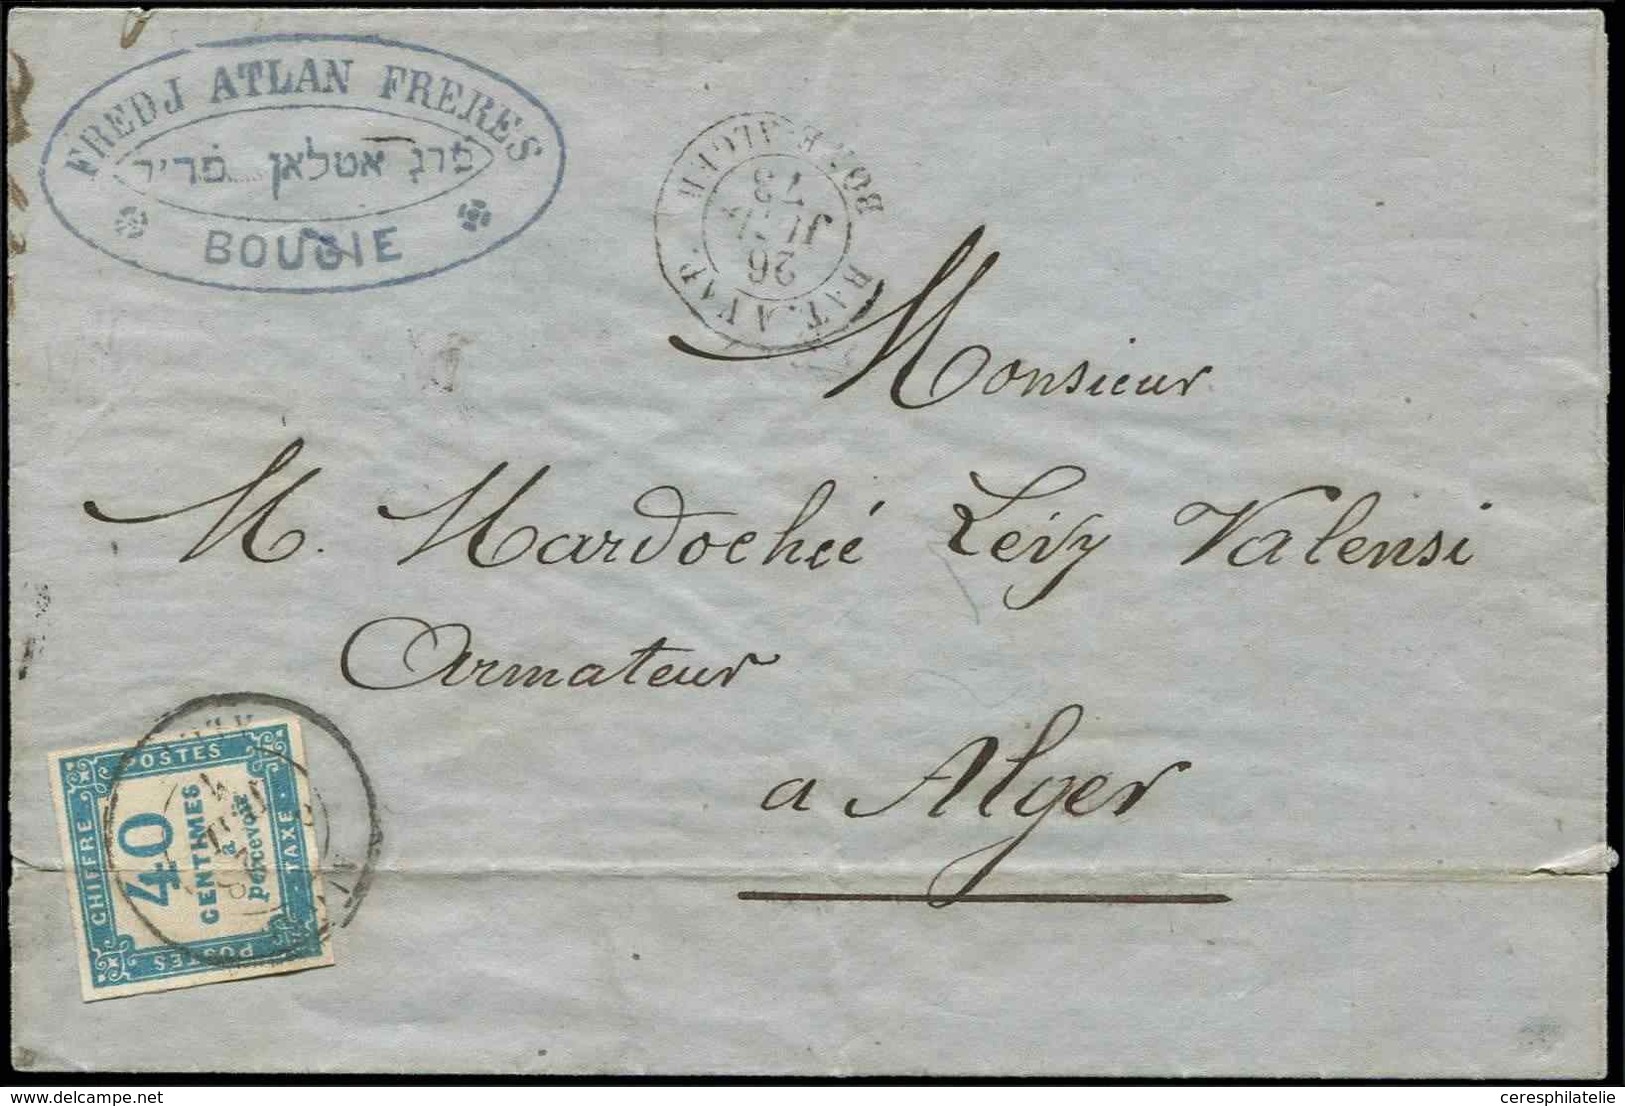 FREDJ ATLAN FRERES
פרג אטלאן פריר
BOUGIE
BONE-ALGER
BAT. A VAP.
26
JUIL
73
Monsieur
M. Mardochée Lévy Valensi
Armateur
a Alger
POSTES
CHIFFRE
40
CENTIMES
à
percevoir
TAXE
POSTES
ceresphilatelie